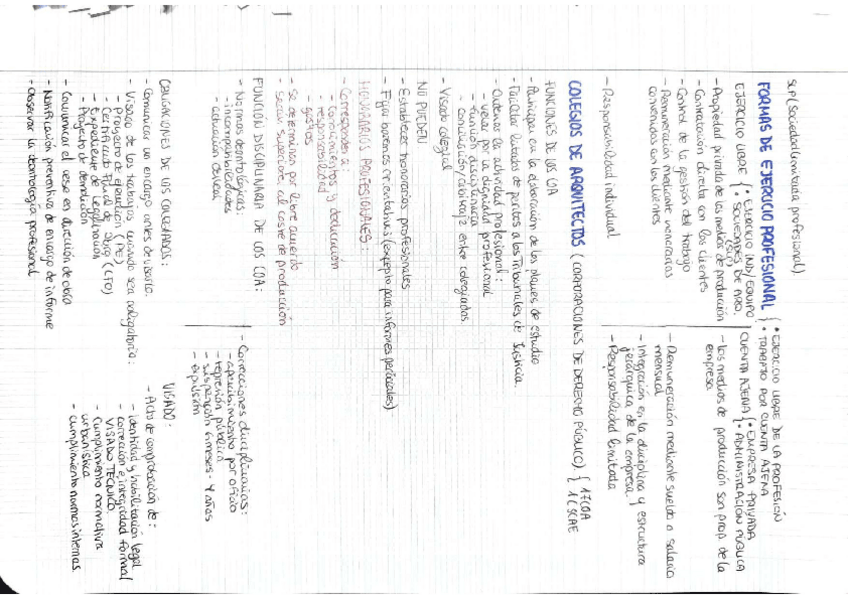 SLP (Sociedad limitada profesional)
FORMAS DE EJERCICIO PROFESIONAL { • EJERCICIO LIBRE DE LA PROFESIÓN
• TRABAJO POR CUENTA AJENA
EJERCICIO LIBRE { • EJERCICIO IND/EQUIPO
• SOCIEDADES DE ARQ.
(SLP)
- Propiedad privada de los medios de producción
- Contratación directa con los clientes
- Control de la gestión del trabajo
- Remuneración mediante honorarios
convenidos con los clientes
- Responsabilidad individual
CUENTA AJENA { • EMPRESA PRIVADA
• ADMINISTRACIÓN PÚBLICA
- Los medios de producción son prop de la
empresa
- Remuneración mediante sueldo o salario
mensual
- Integración en la disciplina y estructura
jerárquica de la empresa.
- Responsabilidad limitada
COLEGIOS DE ARQUITECTOS (CORPORACIONES DE DERECHO PÚBLICO) { 17 COA
1 CSCAE
FUNCIONES DE LOS COA
- Participar en la elaboración de los planes de estudio
- Facilitar listados de peritos a los Tribunales de Justicia.
- Ordenar la actividad profesional:
- velar por la dignidad profesional
- función disciplinaria
- conciliación/arbitraje entre colegiados
- Visado colegial
NO PUEDEN
- Establecer honorarios profesionales
- Fijar baremos orientativos (excepto para informes periciales)
HONORARIOS PROFESIONALES:
- Corresponden a:
- Conocimientos y dedicación
- responsabilidad
- gastos
- Se determinan por libre acuerdo
- Serán superiores al coste de producción
FUNCIÓN DISCIPLINARIA DE LOS COA:
- Normas deontológicas:
- incompatibilidades
- actuación desleal
- Correcciones disciplinarias:
- apercibimiento por oficio
- represión pública
- suspensión 6 meses - 4 años
- expulsión
OBLIGACIONES DE LOS COLEGIADOS:
- Comunicar un encargo antes de visarlo.
- Visado de los trabajos cuando sea obligatoria:
- Proyecto de ejecución (PE)
- Certificado Final de Obra (CFO)
- Expediente de Legalización
- Proyecto de demolición
- Comunicar el cese en dirección de obra
- Notificación preventiva de encargo de informe
- Observar la deontología profesional
VISADO:
- Acto de comprobación de:
- identidad y habilitación legal
- corrección e integridad formal
VISADO TÉCNICO.
- Cumplimiento normativa
urbanística
- cumplimiento normas internas.